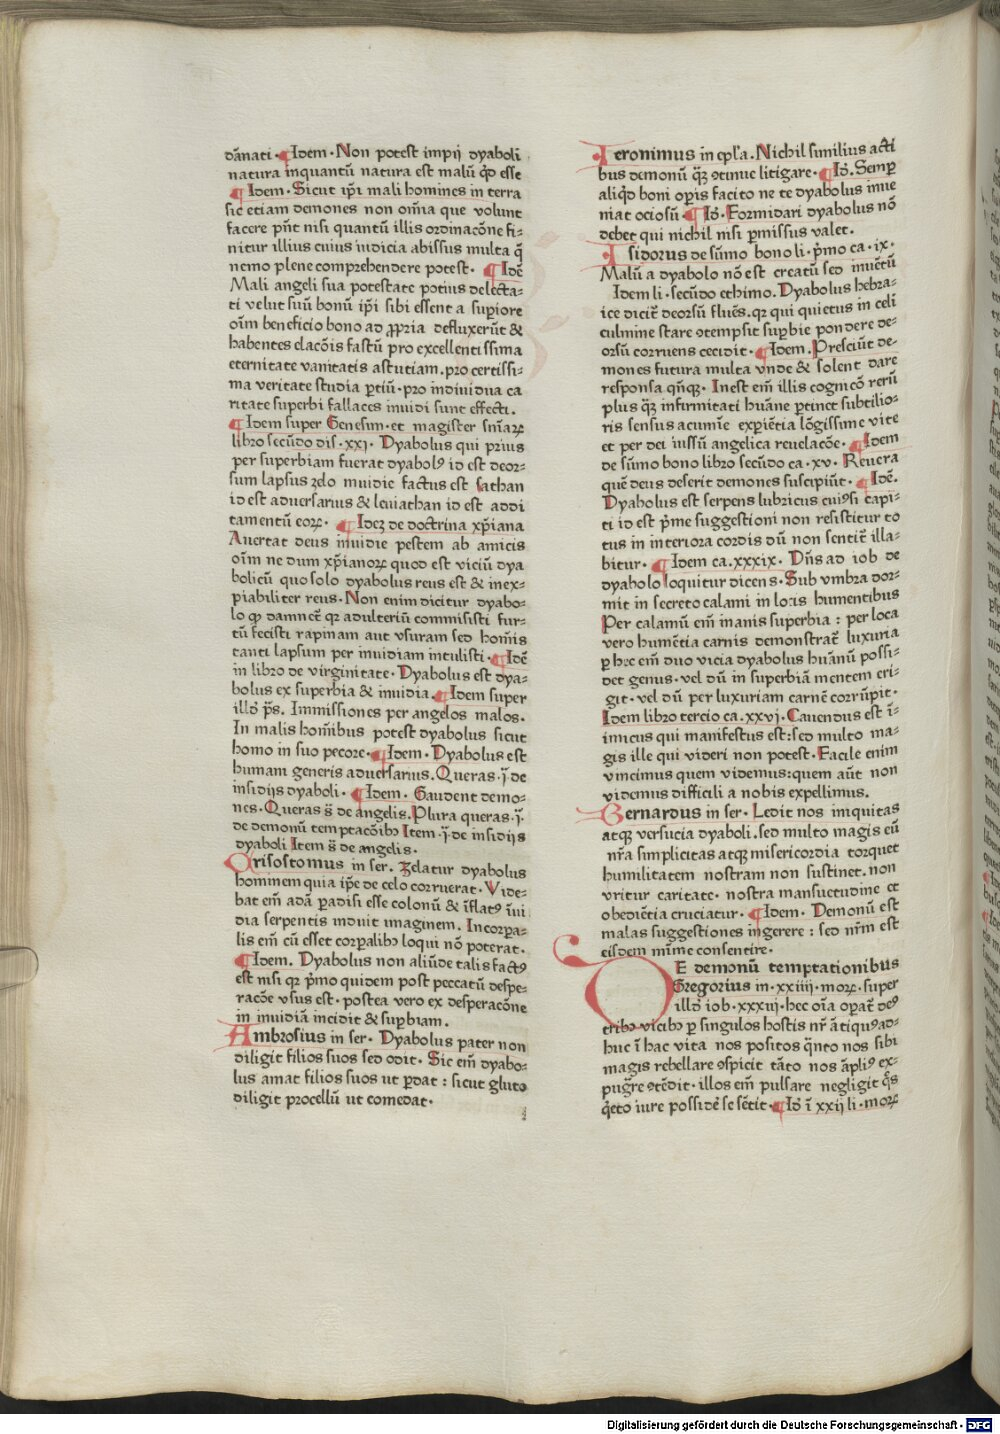 dānati · ¶ Idem · Non potest impij dyaboli
natura inquantū natura est malū qđ esse
¶ Idem · Sicut ip̄i mali homines in terra
sic etiam demones non om̄ia que volunt
facere pn̄t nisi quantū illis ordinacōne fi⸗
nitur illius cuius iudicia abissus multa q̄
nemo plene comprehendere potest · ¶ Idē
Mali angeli sua potestate potius delecta⸗
ti velut suū bonū ip̄i sibi essent a supiore
oīm beneficio bono ad ꝓpria defluxerūt &
habentes elacōis fastū pro excellentissima
eternitate vanitatis astutiam . pro certissi⸗
ma veritate studia ꝑtiū · pro indiuidua ca
ritate superbi fallaces inuidi sunt effecti .
¶ Idem super Genesim · et magister sn̄iaꝝ
libro secūdo dis · xxj · Dyabolus qui prius
per superbiam fuerat dyabolꝰ id est deor⸗
sum lapsus zelo inuidie factus est sathan
id est aduersarius & leuiathan id est addi
tamentū eoꝝ · ¶ Idez de doctrina xp̄iana
Auertat deus inuidie pestem ab amicis
oīm ne dum xp̄ianoꝝ quod est viciū dya
bolicū quo solo dyabolus reus est & inex⸗
piabiliter reus . Non enim dicitur dyabo⸗
lo ꝙ damnet̄ ꝙ adulteriū commisisti fur⸗
tū fecisti rapinam aut vsuram sed hoīnis
tanti lapsum per inuidiam intulisti · ¶ Idē
in libro de virginitate · Dyabolus est dya⸗
bolus ex superbia & inuidia . ¶ Idem super
illo p̄s . Immissiones per angelos malos .
In malis hoīnibus potest dyabolus sicut
homo in suo pecore · ¶ Idem · Dyabolus est
humani generis aduersarius . Queras · j̄ · de
insidijs dyaboli · ¶ Idem · Gaudent demo⸗
nes · Queras s̄ de angelis . Plura queras · j̄ .
de demonū temptacōibꝰ Item · j̄ · de insidijs
dyaboli Item s̄ de angelis ·
Crisostomus in ser . Zelatur dyabolus
hominem quia ip̄e de celo corruerat · Vide⸗
bat em̄ adā ꝑadisi esse colonū & īflatꝰ īui
dia serpentis induit imaginem . Incorpa⸗
lis em̄ cū esset corꝑalibꝰ loqui nō poterat .
¶ Idem . Dyabolus non aliūde talis factꝰ
est nisi qꝛ p̄mo quidem post peccatū despe⸗
racōe vsus est · postea vero ex desperacōne
in inuidiā incidit & supbiam .
Ambrosius in ser · Dyabolus pater non
diligit filios suos sed odit · Sic em̄ dyabo⸗
lus amat filios suos ut ꝑdat : sicut gluto
diligit porcellū ut comedat ·
Ieronimus in ep̄l'a . Nichil similius acti
bus demonū qȝ ꝯtinue litigare · ¶ Id̄ . Semp
aliqd̄ boni oꝑis facito ne te dyabolus inue
niat ociosū · ¶ Id̄ · Formidari dyabolus nō
debet qui nichil nisi ꝑmissus valet .
Isidorus de sūmo bono li · p̄mo ca · ix ·
Malū a dyabolo nō est creatū sed inuētū
Idem li · secūdo ethimo . Dyabolus hebra⸗
ice dicit̄ deorsū fluēs . qꝛ qui quietus in celi
culmine stare ꝯtempsit supbie pondere de⸗
orsū corruens cecidit · ¶ Idem . Presciūt de⸗
mones futura multa vnde & solent dare
responsa qn̄qꝫ · Inest em̄ illis cognicō rerū
plus qȝ infirmitati hūane ꝑtinet subtilio⸗
ris sensus acumīe exꝑiētia lōgissime vite
et per dei iussū angelica reuelacōe · ¶ Idem
de sūmo bono libro secūdo ca · xv · Reuera
quē deus deserit demones suscipiūt · ¶ Idē .
Dyabolus est serpens lubricus cuiꝰ si capi⸗
ti id est p̄me suggestioni non resistitur to
tus in interiora cordis dū non sentit̄ illa⸗
bitur · ¶ Idem ca . xxxix · Dn̄s ad iob de
dyabolo loquitur dicens · Sub vmbra dor⸗
mit in secreto calami in locis humentibus
Per calamū em̄ inanis superbia : per loca
vero humētia carnis demonstrat̄ luxuria
ꝑ hec em̄ duo vicia dyabolus hūanū possi⸗
det genus · vel dū in superbiā mentem eri⸗
git · vel dū per luxuriam carnē corrūpit ·
Idem libro tercio ca . xxvj · Cauendus est ī⸗
imicus qui manifestus est : sed multo ma⸗
gis ille qui videri non potest · Facile enim
vincimus quem videmus : quem aūt non
videmus difficili a nobis expellimus .
Bernardus in ser · Ledit nos iniquitas
atqꝫ versucia dyaboli . sed multo magis eū
nr̄a simplicitas atqꝫ misericordia torquet
humilitatem nostram non sustinet . non
vritur caritate · nostra mansuetudine et
obediētia cruciatur · ¶ Idem · Demonū est
malas suggestiones ingerere : sed nr̄m est
eisdem mīme consentire ·
DE demonū temptationibus
Gregorius in · xxiiij · moꝝ · super
illo iob · xxxvj · hec oīa oꝑat̄ deꝰ
tribꝰ vicibꝰ ꝑ singulos hostis nr̄ ātiquꝰ ad⸗
huc ī hac vita nos positos qn̄to nos sibi
magis rebellare ꝯspicit tāto nos āpliꝰ ex⸗
pugr̄e ꝯtēdit · illos em̄ pulsare negligit qͦs
q̄eto iure possidē se sētit · ¶ Id̄ ī xxij li · moꝝ
Digitalisierung gefördert durch die Deutsche Forschungsgemeinschaft - DFG